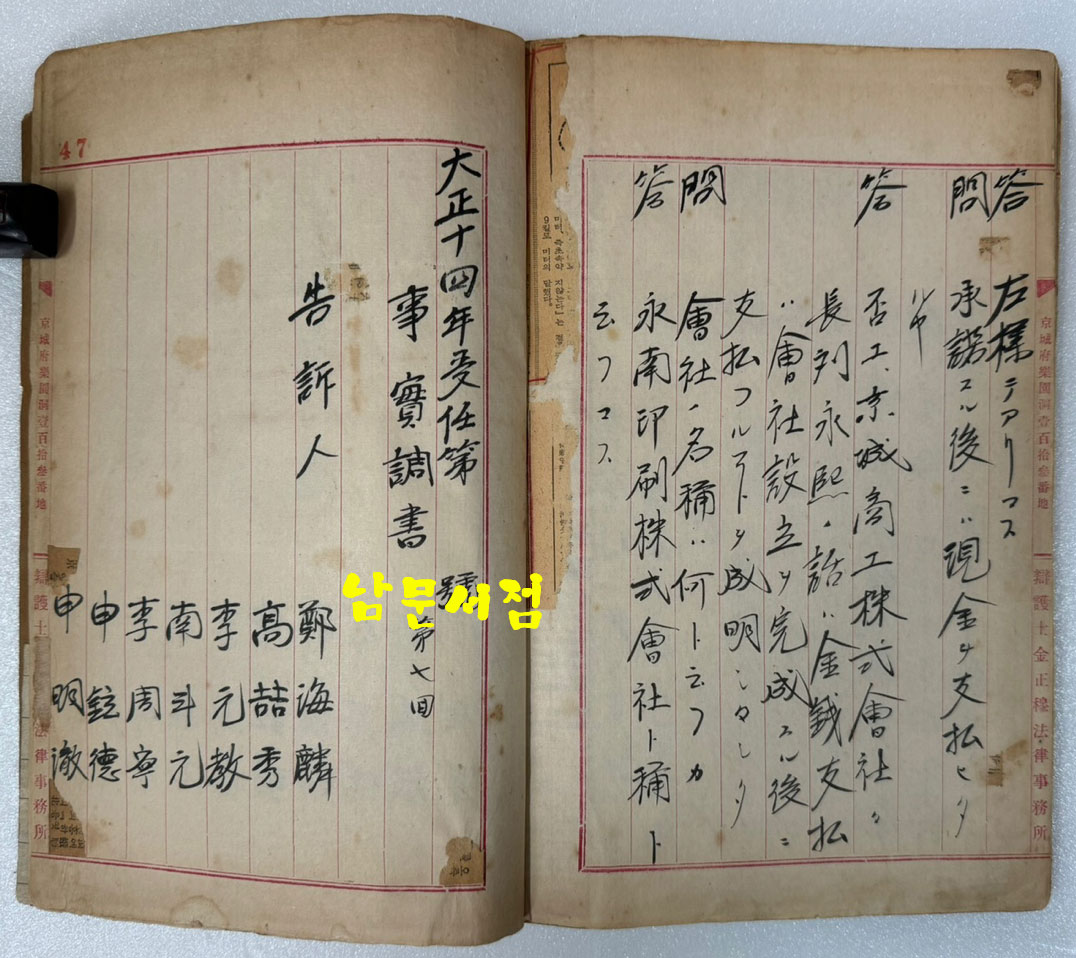 答 左樣テアリマス
問 承諾スル後ニハ現金ヲ支払ヒタ
ル乎
答 否エ、京城商工株式會社々
長 永熙ノ話ハ金錢支払
ハ會社設立ヲ完成スル後ニ
支払フルコトヲ成明シマシタ
問 會社ノ名稱ハ何ト云フカ
答 永南印刷株式會社ト稱ト
云フマス
京城府樂園洞壹百拾參番地
辯護士金正穆法律事務所
大正十四年受任第 號
事實調書 第七回
告訴人 鄭海麟
高喆秀
李元教
南斗元
李周寧
申鉉德
申明澈
47
京城府樂園洞壹百拾參番地
辯護士 法律事務所
남문서점